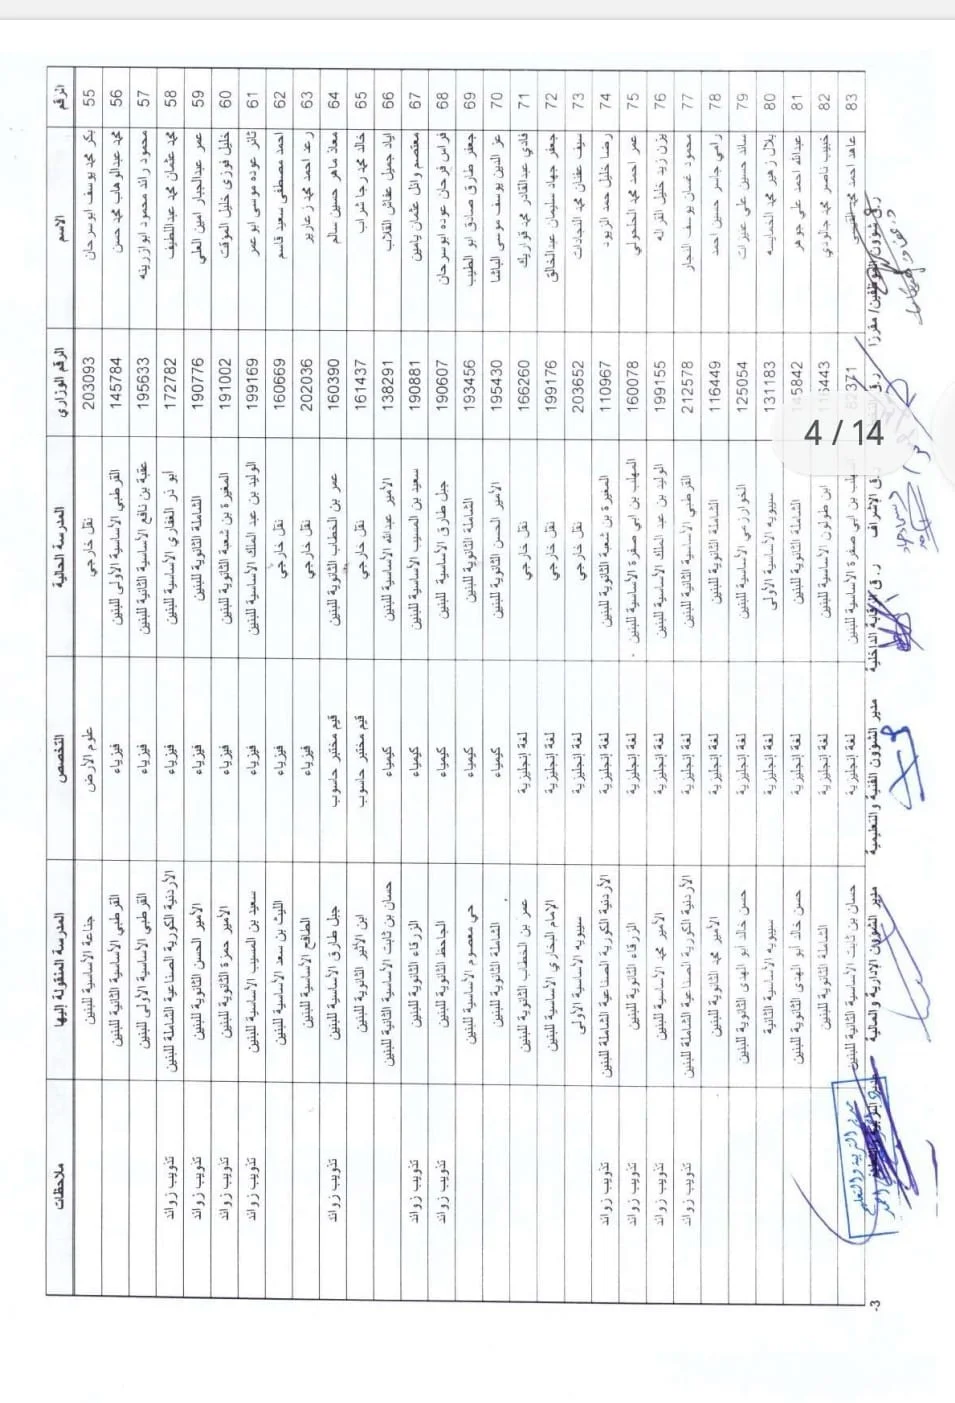 الرقم الاسم الرقم الوزاري المدرسة الحالية التخصص المدرسة المنقولة إليها ملاحظات
55 بكر محمد يوسف ابو سرحان 203093 نقل خارجي علوم الأرض جناعة الأساسية للبنين
56 محمد عبدالوهاب محمد حسن 145784 القرطبي الأساسية الأولى للبنين فيزياء القرطبي الأساسية الثانية للبنين
57 محمود رائد محمود ابوازرينه 195633 عقبة بن نافع الأساسية الثانية للبنين فيزياء القرطبي الأساسية الأولى للبنين
58 محمد عثمان محمد عبداللطيف 172782 ابو ذر الغفاري الأساسية للبنين فيزياء الأردنية الكورية الصناعية الشاملة للبنين تذويب زوائد
59 عمر عبدالجبار امين العلي 190776 الشاملة الثانوية للبنين فيزياء الأمير الحسن الثانوية للبنين تذويب زوائد
60 خليل فوزي خليل الموقت 191002 المغيرة بن شعبة الثانوية للبنين فيزياء الأمير حمزة الثانوية للبنين تذويب زوائد
61 ثائر عوده موسى ابو عمر 199169 الوليد بن عبد الملك الأساسية للبنين فيزياء سعيد بن المسيب الأساسية للبنين تذويب زوائد
62 احمد مصطفى سعيد قاسم 160669 نقل خارجي فيزياء الليث بن سعد الأساسية للبنين
63 رعد احمد محمد زعارير 202036 نقل خارجي فيزياء الطافح الأساسية للبنين
64 معاذ ماهر حسين سالم 160390 عمر بن الخطاب الثانوية للبنين قيم مختبر حاسوب جبل طارق الأساسية للبنين تذويب زوائد
65 خالد محمد رجا شراب 161437 نقل خارجي قيم مختبر حاسوب ابن الأثير الثانوية للبنين
66 اياد جميل عفاش القلاب 138291 الأمير عبدالله الأساسية للبنين كيمياء حسان بن ثابت الأساسية الثانية للبنين
67 معتصم وائل عثمان يامين 190881 سعيد بن المسيب الأساسية للبنين كيمياء الزرقاء الثانوية للبنين تذويب زوائد
68 فراس فرحان عوده ابو سرحان 190607 جبل طارق الأساسية للبنين كيمياء الجاحظ الثانوية للبنين تذويب زوائد
69 جعفر طارق صادق ابو الطيب 193456 الشاملة الثانوية للبنين كيمياء حي معصوم الأساسية للبنين
70 عز الدين يوسف موسى الباشا 195430 الأمير الحسن الثانوية للبنين كيمياء الشاملة الثانوية للبنين
71 فادي عبدالقادر محمد قواريك 166260 نقل خارجي لغة إنجليزية عمر بن الخطاب الثانوية للبنين
72 جعفر جهاد سليمان عبدالخالق 199176 نقل خارجي لغة إنجليزية الإمام البخاري الأساسية للبنين
73 سيف عفان محمد النجادات 203652 نقل خارجي لغة إنجليزية سيبويه الأساسية الأولى
74 رضا خليل حمد الزيود 110967 المغيرة بن شعبة الثانوية للبنين لغة إنجليزية الأردنية الكورية الصناعية الشاملة للبنين تذويب زوائد
75 عمر احمد محمد الحلحولي 160078 المهلب بن ابي صفرة الأساسية للبنين لغة إنجليزية الزرقاء الثانوية للبنين تذويب زوائد
76 يزن زيد خليل القر اله 199155 الوليد بن عبد الملك الأساسية للبنين لغة إنجليزية الأمير محمد الأساسية للبنين تذويب زوائد
77 محمود غسان يوسف النجار 212578 القرطبي الأساسية الثانية للبنين لغة إنجليزية الأردنية الكورية الصناعية الشاملة للبنين تذويب زوائد
78 رامي جاسر حسين احمد 116449 الشاملة الثانوية للبنين لغة إنجليزية الأمير محمد الثانوية للبنين
79 سائد حسين علي عبيرات 125054 الخوارزمي الأساسية للبنين لغة إنجليزية حسن خالد أبو الهدى الثانوية للبنين
80 بلال زهير محمد الحمايسه 131183 سيبويه الأساسية الأولى لغة إنجليزية سيبويه الأساسية الثانية
81 عبدالله احمد علي جوهر 145842 الشاملة الثانوية للبنين لغة إنجليزية حسن خالد أبو الهدى الثانوية للبنين
82 حبيب ناصر محمد جالودي ابن طولون الأساسية للبنين لغة إنجليزية الشاملة الثانوية للبنين
83 عاهد احمد محمد 82371 المهلب بن ابي صفرة الأساسية للبنين لغة إنجليزية حسان بن ثابت الأساسية الثانية للبنين
ر.ق شؤون الموظفين/ مقررا ر.ق الاشراف ر.ق الرقابة الداخلية مدير الشؤون الفنية والتعليمية مدير الشؤون الإدارية والمالية مدير التربية والتعليم
مدير التربية والتعليم
3-
4 / 14